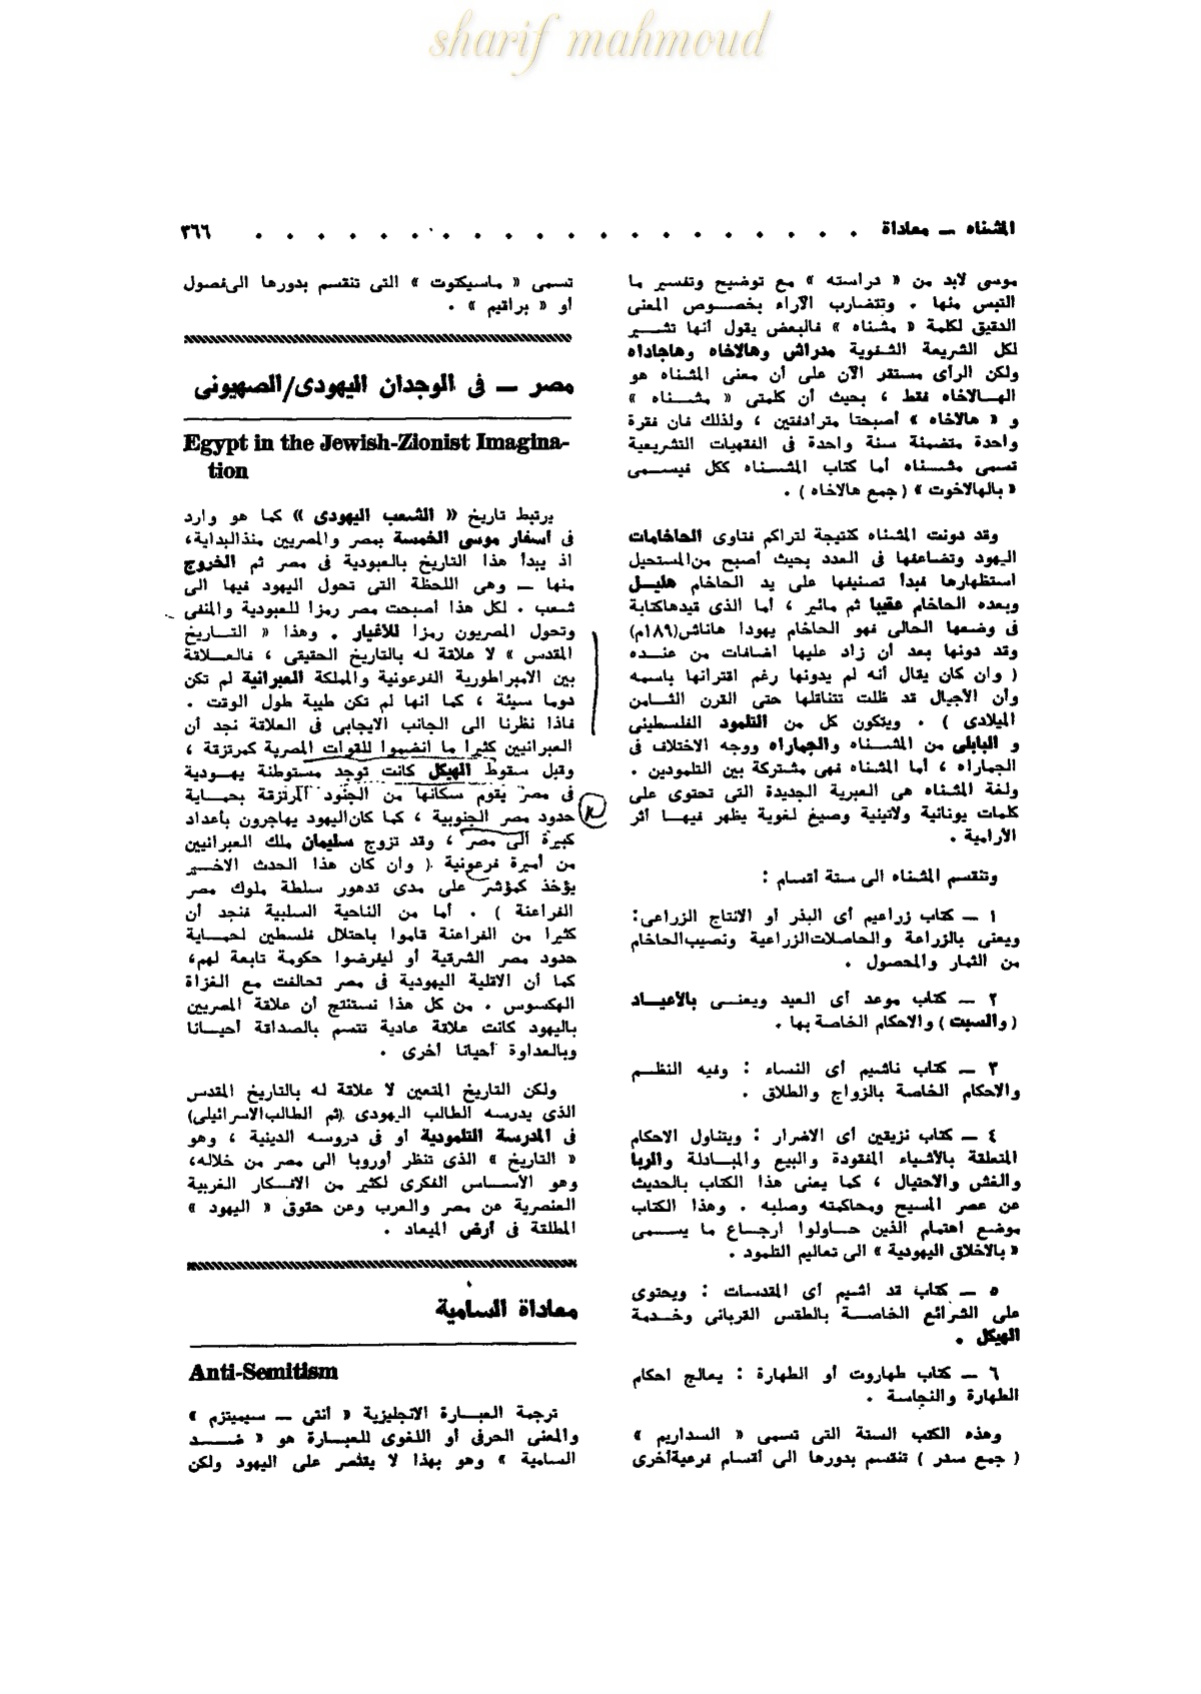 sharif mahmoud
المشناه — معاداة
٣٦٦
موسى لابد من « دراسته » مع توضيح وتفسير ما
التبس منها . وتتضارب الآراء بخصوص المعنى
الدقيق لكلمة « مشناه » فالبعض يقول أنها تشير
لكل الشريعة الشفوية مدراش وهالاخاه وهاجاداه
ولكن الرأى مستقر الآن على أن معنى المشناه هو
الهالاخاه فقط ، بحيث أن كلمتى « مشناه »
و « هالاخاه » أصبحتا مترادفتين ، ولذلك فان فقرة
واحدة متضمنة سنة واحدة فى الفقهيات التشريعية
تسمى مشناه أما كتاب المشناه ككل فيسمى
« بالهالاخوت » ( جمع هالاخاه ) .
وقد دونت المشناه كنتيجة لتراكم فتاوى الحاخامات
اليهود وتضاعفها فى العدد بحيث أصبح من المستحيل
استظهارها فبدأ تصنيفها على يد الحاخام هليل
وبعده الحاخام عقيبا ثم مائير ، أما الذى قيدها كتابة
فى وضعها الحالى فهو الحاخام يهودا هاناش (١٨٩م)
وقد دونها بعد أن زاد عليها اضافات من عنده
( وان كان يقال أنه لم يدونها رغم اقترانها باسمه
وأن الأجيال قد ظلت تتناقلها حتى القرن الثامن
الميلادى ) . ويتكون كل من التلمود الفلسطينى
و البابلى من المشناه والجماراه ووجه الاختلاف فى
الجماراه ، أما المشناه فهى مشتركة بين التلمودين .
ولغة المشناه هى العبرية الجديدة التى تحتوى على
كلمات يونانية ولاتينية وصيغ لغوية يظهر فيها أثر
الآرامية .
وتنقسم المشناه الى ستة أقسام :
١ — كتاب زراعيم أى البذر أو الانتاج الزراعى :
ويعنى بالزراعة والحاصلات الزراعية ونصيب الحاخام
من الثمار والمحصول .
٢ — كتاب موعد أى العيد ويعنى بالأعياد
( والسبت ) والاحكام الخاصة بها .
٣ — كتاب ناشيم أى النساء : وفيه النظم
والاحكام الخاصة بالزواج والطلاق .
٤ — كتاب نزيقين أى الاضرار : ويتناول الاحكام
المتعلقة بالأشياء المفقودة والبيع والمبادلة والربا
والغش والاحتيال ، كما يعنى هذا الكتاب بالحديث
عن عصر المسيح ومحاكمته وصلبه . وهذا الكتاب
موضع اهتمام الذين حاولوا ارجاع ما يسمى
« بالاخلاق اليهودية » الى تعاليم التلمود .
٥ — كتاب قد اشيم أى المقدسات : ويحتوى
على الشرائع الخاصة بالطقس القربانى وخدمة
الهيكل .
٦ — كتاب طهاروت أو الطهارة : يعالج احكام
الطهارة والنجاسة .
وهذه الكتب الستة التى تسمى « السداريم »
( جمع سدر ) تنقسم بدورها الى أقسام فرعية أخرى
تسمى « ماسيكتوت » التى تنقسم بدورها الى فصول
أو « براقيم » .
مصر — فى الوجدان اليهودى/الصهيونى
Egypt in the Jewish-Zionist Imagina-
tion
يرتبط تاريخ « الشعب اليهودى » كما هو وارد
فى أسفار موسى الخمسة بمصر والمصريين منذ البداية ،
اذ يبدأ هذا التاريخ بالعبودية فى مصر ثم الخروج
منها — وهى اللحظة التى تحول اليهود فيها الى
شعب . لكل هذا أصبحت مصر رمزا للعبودية والمنفى
وتحول المصريون رمزا للأغيار . وهذا « التاريخ
المقدس » لا علاقة له بالتاريخ الحقيقى ، فالعلاقة
بين الامبراطورية الفرعونية والمملكة العبرانية لم تكن
دوما سيئة ، كما انها لم تكن طيبة طول الوقت .
فاذا نظرنا الى الجانب الايجابى فى العلاقة نجد أن
العبرانيين كثيرا ما انضموا للقوات المصرية كمرتزقة ،
وقبل سقوط الهيكل كانت توجد مستوطنة يهودية
فى مصر يقوم سكانها من الجنود المرتزقة بحماية
حدود مصر الجنوبية ، كما كان اليهود يهاجرون بأعداد
كبيرة الى مصر ، وقد تزوج سليمان ملك العبرانيين
من أميرة فرعونية ( وان كان هذا الحدث الاخير
يؤخذ كمؤشر على مدى تدهور سلطة ملوك مصر
الفراعنة ) . أما من الناحية السلبية فنجد أن
كثيرا من الفراعنة قاموا باحتلال فلسطين لحماية
حدود مصر الشرقية أو ليفرضوا حكومة تابعة لهم ،
كما أن الاقلية اليهودية فى مصر تحالفت مع الغزاة
الهكسوس . من كل هذا نستنتج أن علاقة المصريين
باليهود كانت علاقة عادية تتسم بالصداقة أحيانا
وبالعداوة أحيانا أخرى .
ولكن التاريخ المتعين لا علاقة له بالتاريخ المقدس
الذى يدرسه الطالب اليهودى (ثم الطالب الاسرائيلى)
فى المدرسة التلمودية أو فى دروسه الدينية ، وهو
« التاريخ » الذى تنظر أوروبا الى مصر من خلاله ،
وهو الأساس الفكرى لكثير من الافكار الغربية
العنصرية عن مصر والعرب وعن حقوق « اليهود »
المطلقة فى أرض الميعاد .
معاداة السامية
Anti-Semitism
ترجمة العبارة الانجليزية « أنتى — سيميتزم »
والمعنى الحرفى أو اللغوى للعبارة هو « ضد
السامية » وهو بهذا لا يقتصر على اليهود ولكن